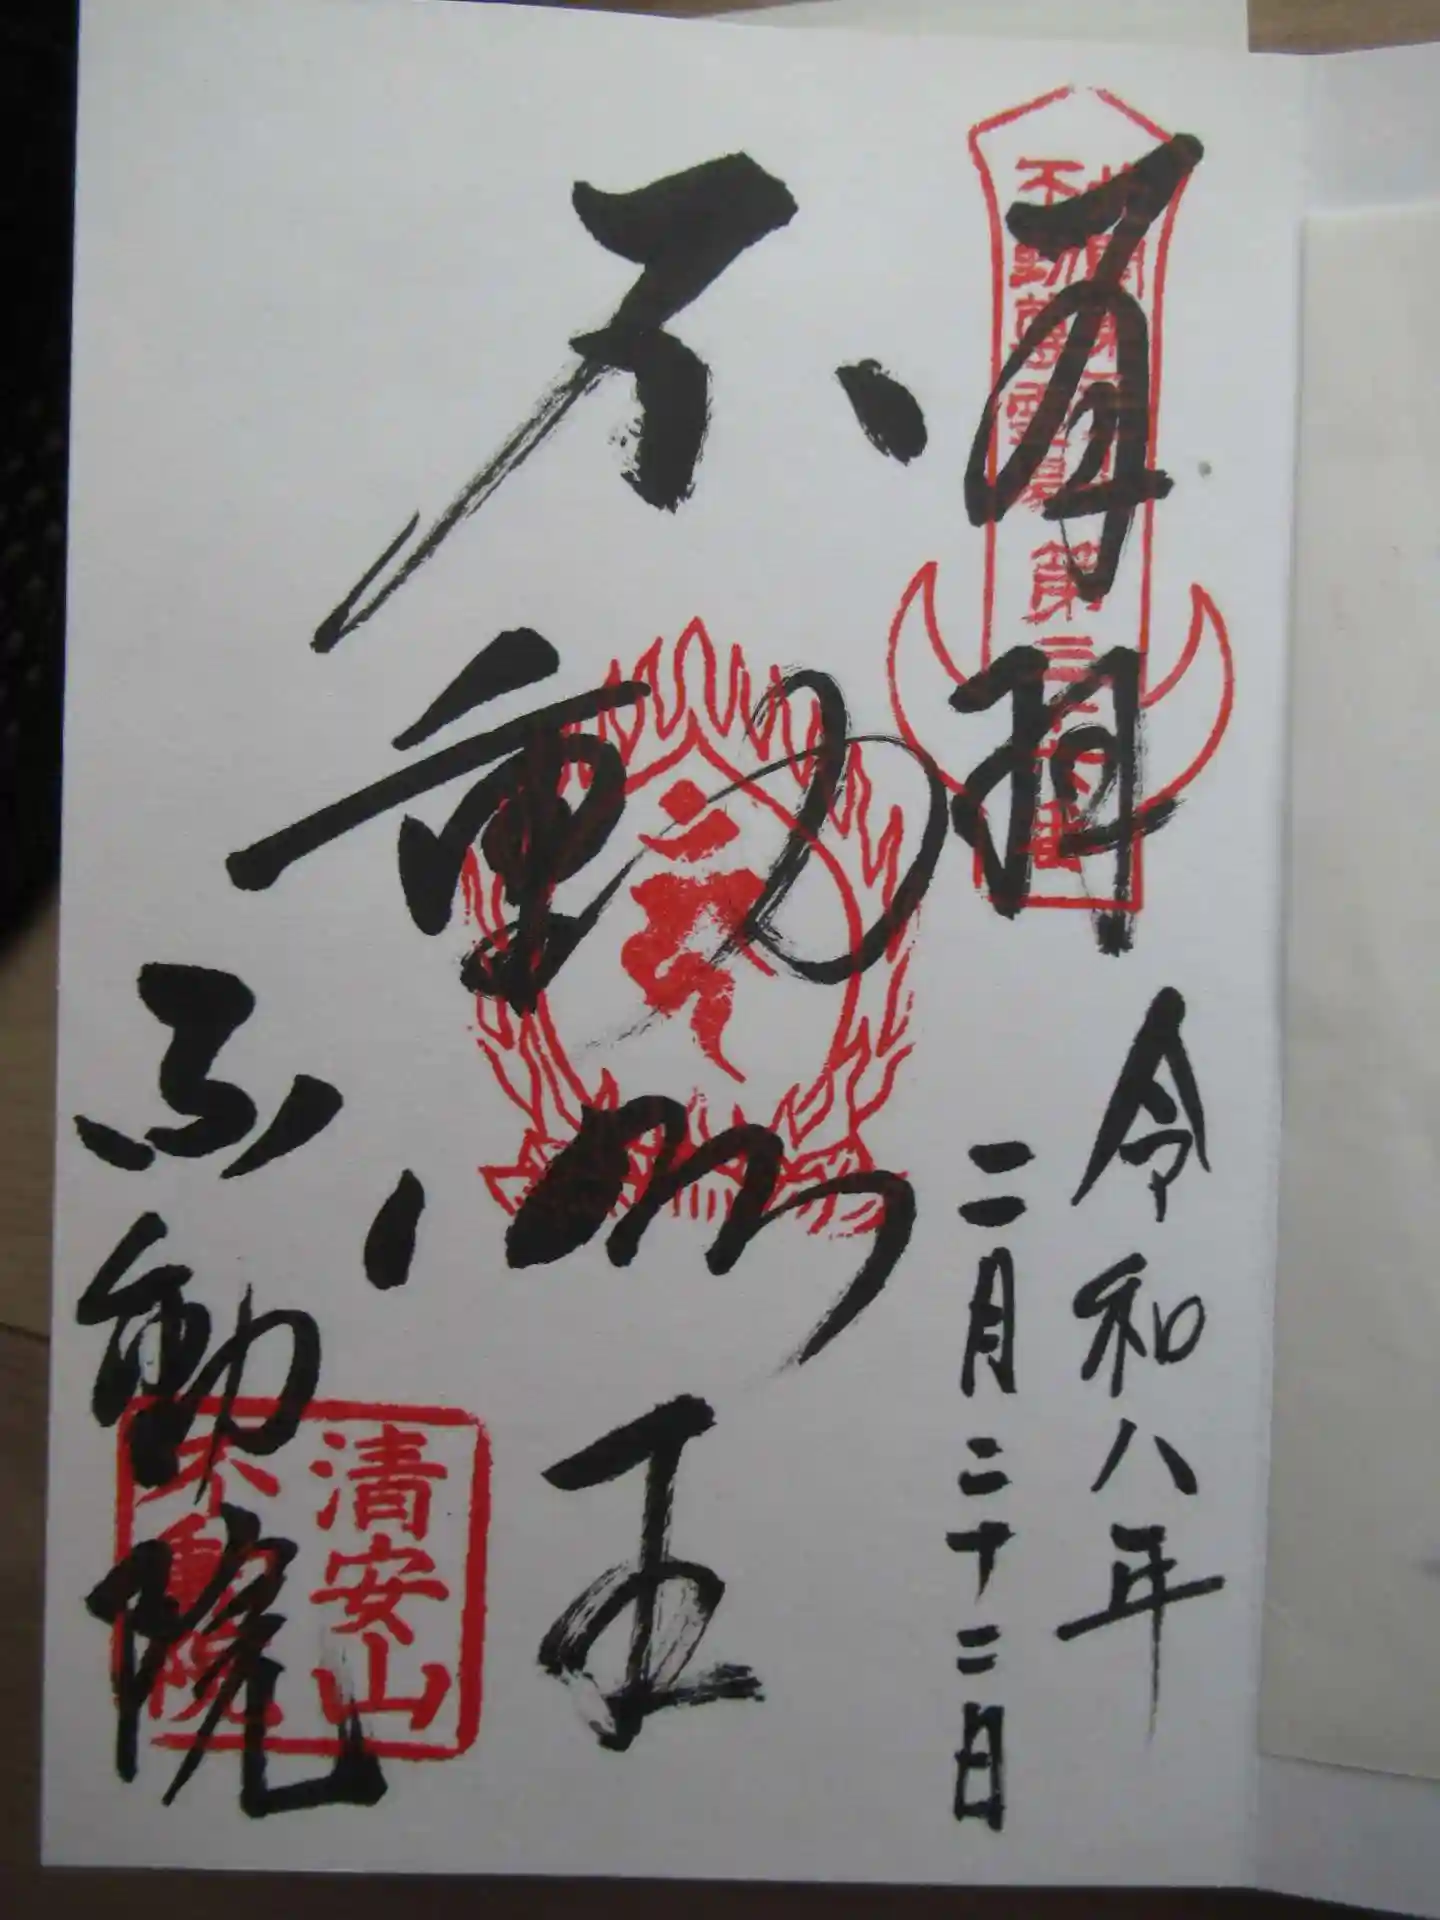 奉拝
令和八年
二月二十二日
不動明王
不動院
不動尊霊場
第三十六番
清安山
不動院